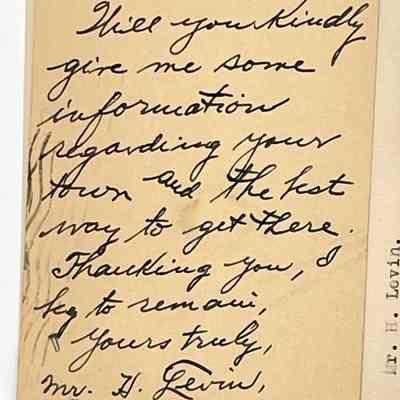 Will you kindly
give me some
information
regarding your
town and the best
way to get there.
Thanking you, I
beg to remain,
Yours truly,
Mr. H. Levin,
Mr. H. Lovin.